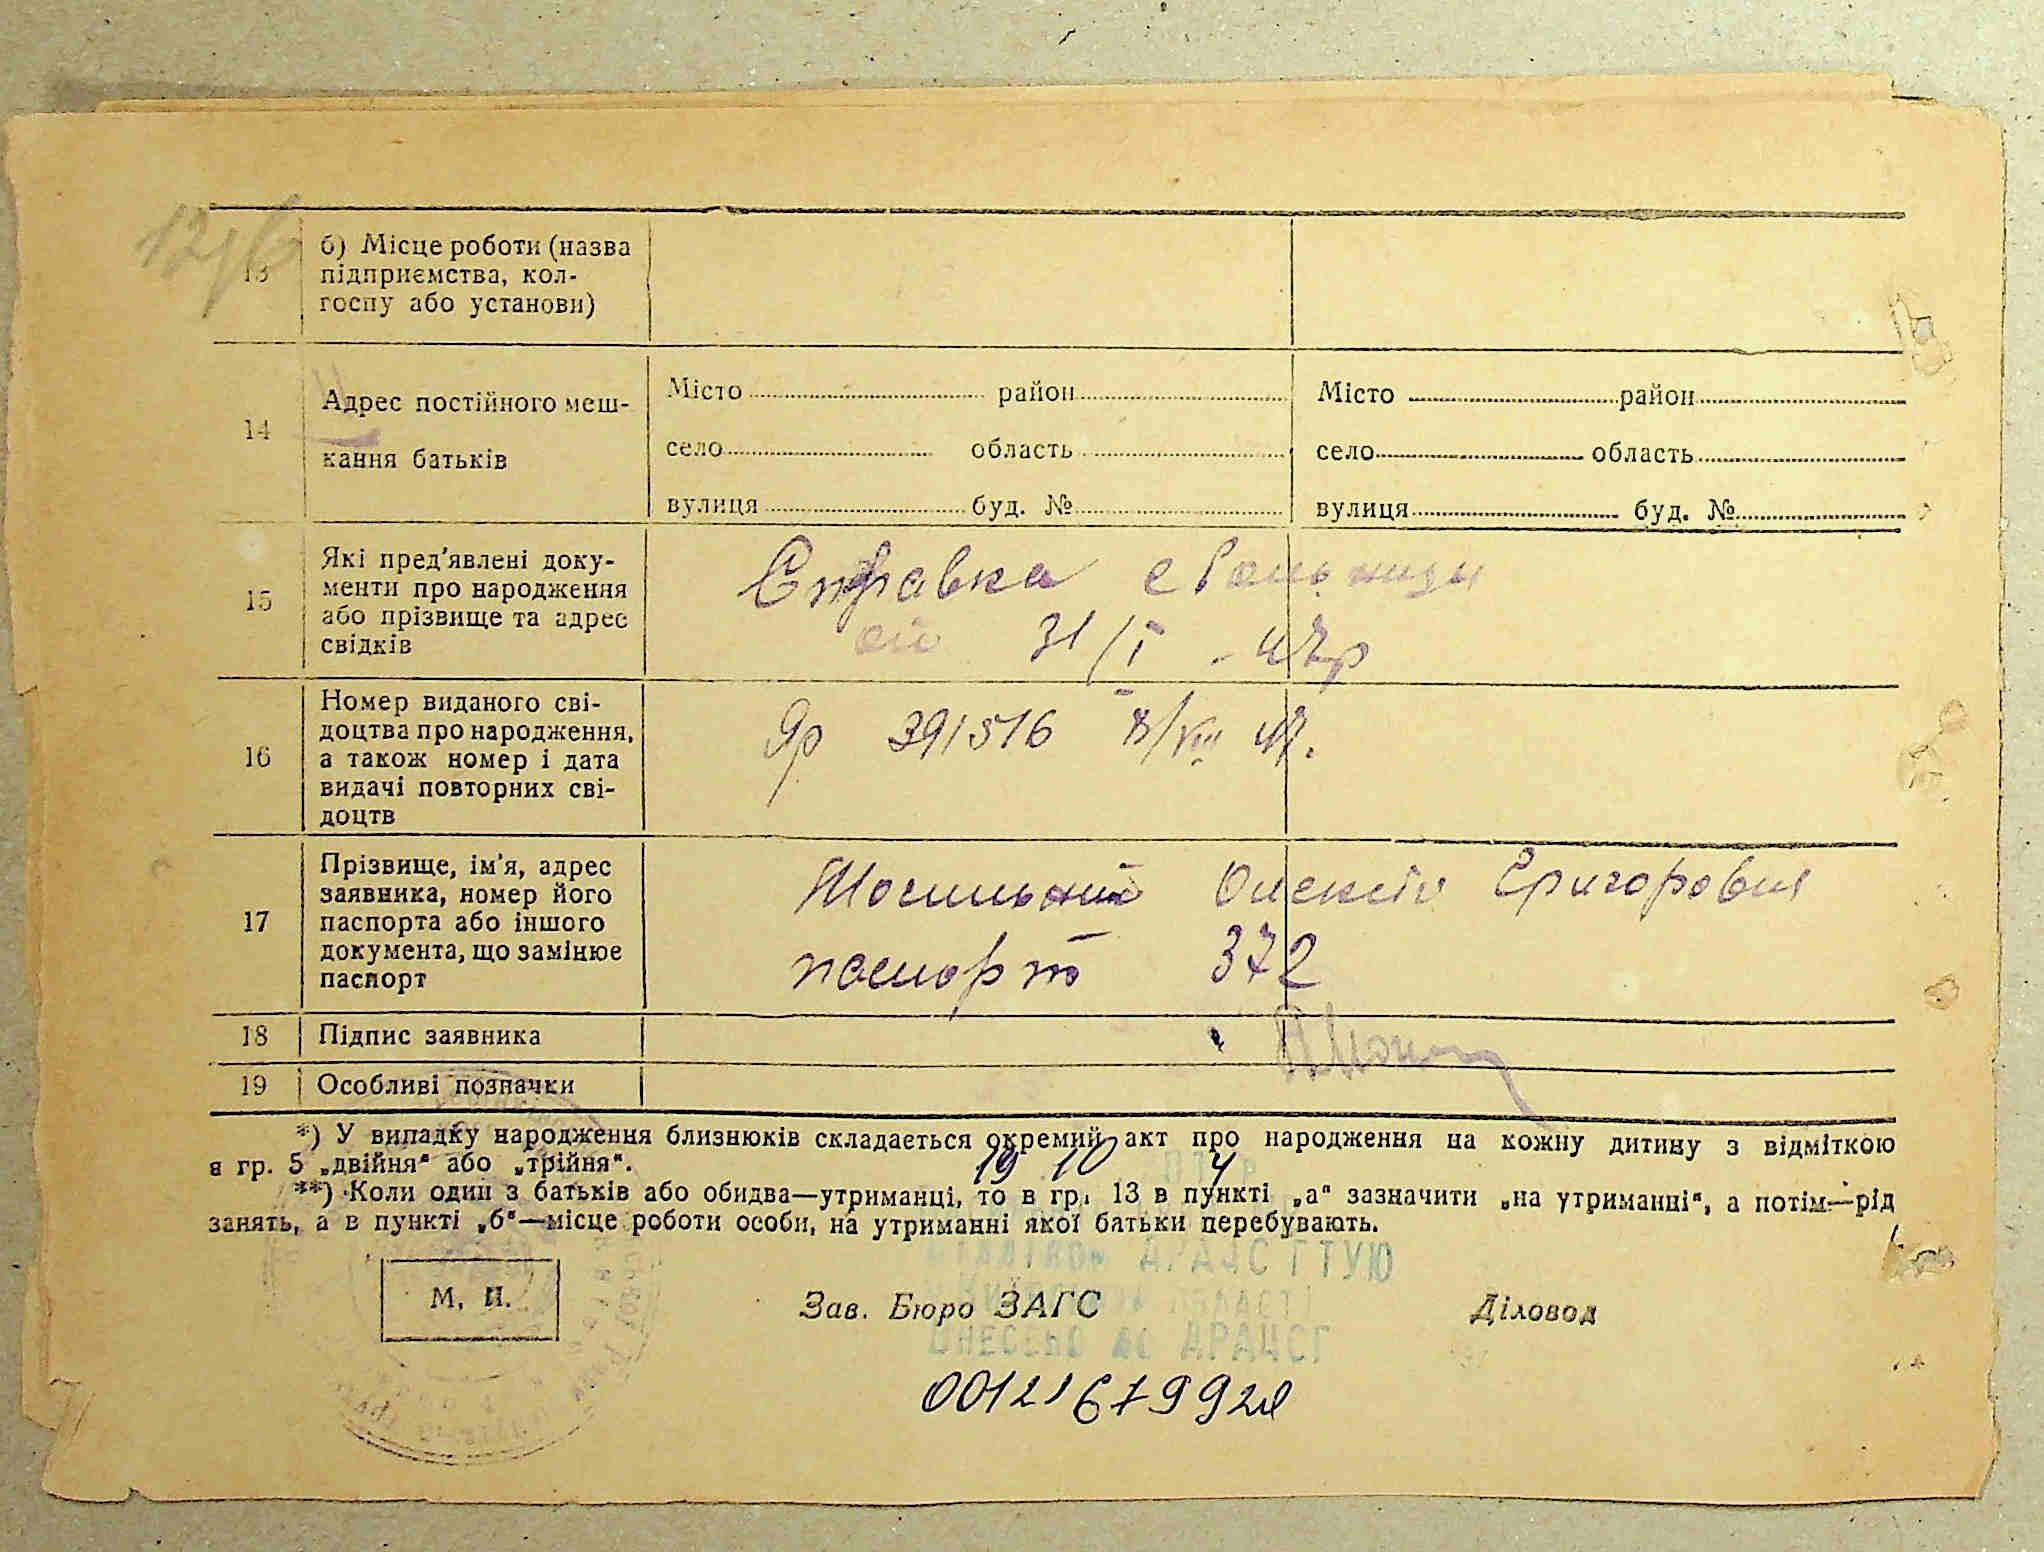 12/6
13
б) Місце роботи (назва
підприємства, кол-
госпу або установи)
14
Адрес постійного меш-
кання батьків
Місто район
село область
вулиця буд. №
Місто район
село область
вулиця буд. №
15
Які пред'явлені доку-
менти про народження
або прізвище та адрес
свідків
Справка
31/I
16
Номер виданого сві-
доцтва про народження,
а також номер і дата
видачі повторних сві-
доцтв
Яр 391516 47.
17
Прізвище, ім'я, адрес
заявника, номер його
паспорта або іншого
документа, що замінює
паспорт
Олексій Григорович
паспорт 372
18
Підпис заявника
19
Особливі позначки
*) У випадку народження близнюків складається окремий акт про народження на кожну дитину з відміткою
в гр. 5 „двійня" або „трійня".
19 10 4
**) Коли один з батьків або обидва—утриманці, то в гр. 13 в пункті „а" зазначити „на утриманні", а потім—рід
занять, а в пункті „б"—місце роботи особи, на утриманні якої батьки перебувають.
АРАЦС ГТУЮ
області
внесено до АРАЦСГ
М. П.
Зав. Бюро ЗАГС
Діловод